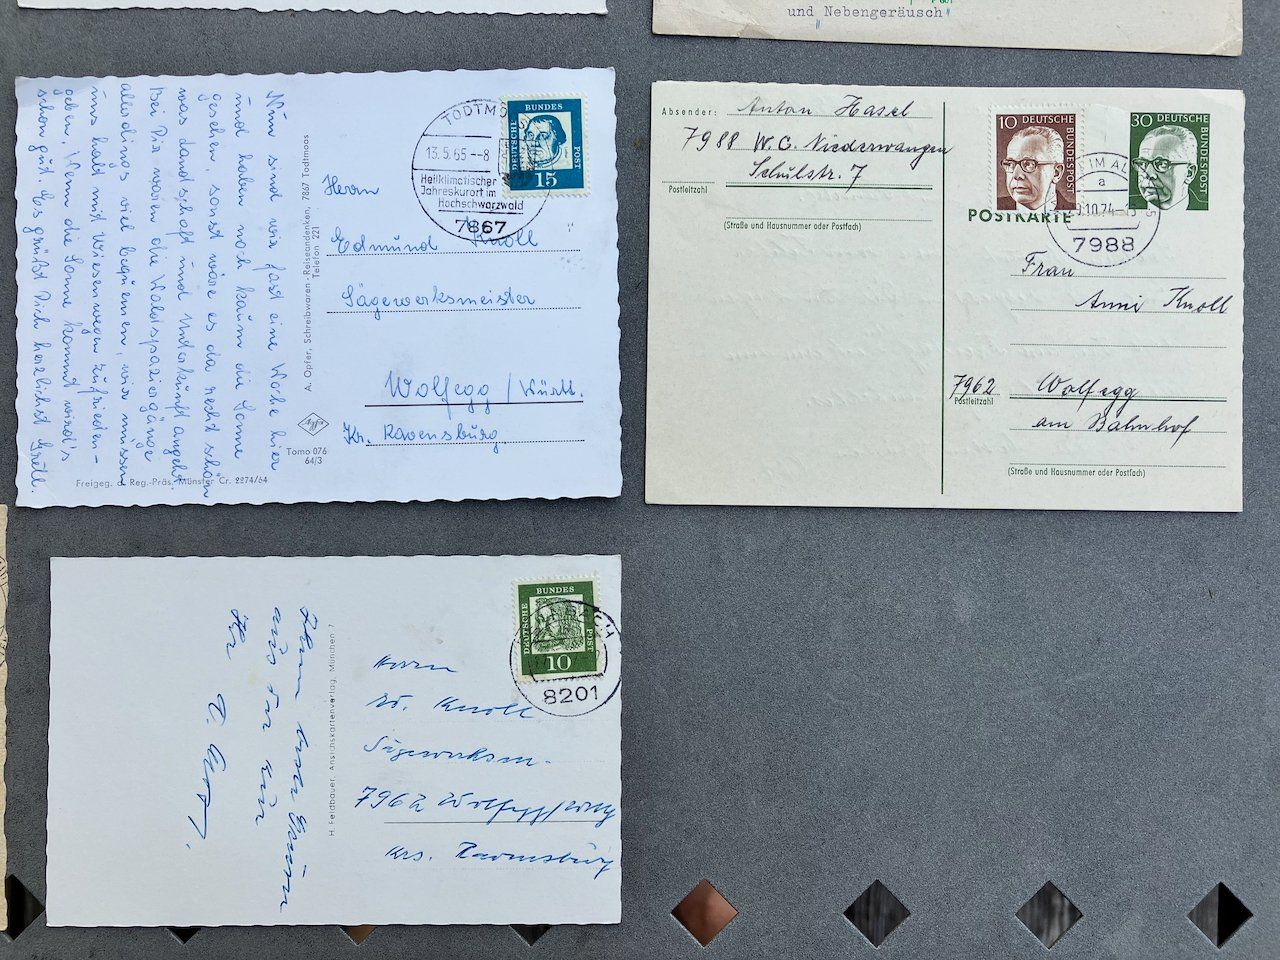 und Nebengeräusch"
Nun sind wir fast eine Woche hier
und haben noch kaum die Sonne
gesehen, sonst wäre es da recht schön
was Landschaft und Unterkunft angeht.
Bei Dir waren die Waldspaziergänge
allerdings viel bequemer, wir müssen
uns halt mit Wiesenwegen zufrieden-
geben. Wenn die Sonne kommt wird's
schon gut. Es grüßt Dich herzlichst Gretl.
Freigeg. d. Reg.-Präs. Münster Cr. 2274/64
A. Opfer, Schreibwaren-Reiseandenken, 7867 Todtmoos
Telefon 221
Agfa
Tomo 076
64/3
TODTMO
13.5.65--8
Heilklimatischer
Jahreskurort im
Hochschwarzwald
7867
DEUTSCHE BUNDES POST
15
Herrn
Edmund Knoll
Sägewerksmeister
Wolfegg / Württ.
Kr. Ravensburg
Absender: Anton Hasel
7988 W.G. Niederwangen
Schulstr. 7
Postleitzahl
(Straße und Hausnummer oder Postfach)
10 DEUTSCHE BUNDESPOST
30 DEUTSCHE BUNDESPOST
POSTKARTE
a
.10.74
7988
Frau
Anni Knoll
7962 Wolfegg
Postleitzahl
am Bahnhof
(Straße und Hausnummer oder Postfach)
aus der Kur
Ihr
H. Feldbauer, Ansichtskartenverlag, München 7
DEUTSCHE BUNDES POST
10
8201
Herrn
Ed. Knoll
Sägewerksm.
7962 Wolfegg/Wttg
Krs. Ravensburg